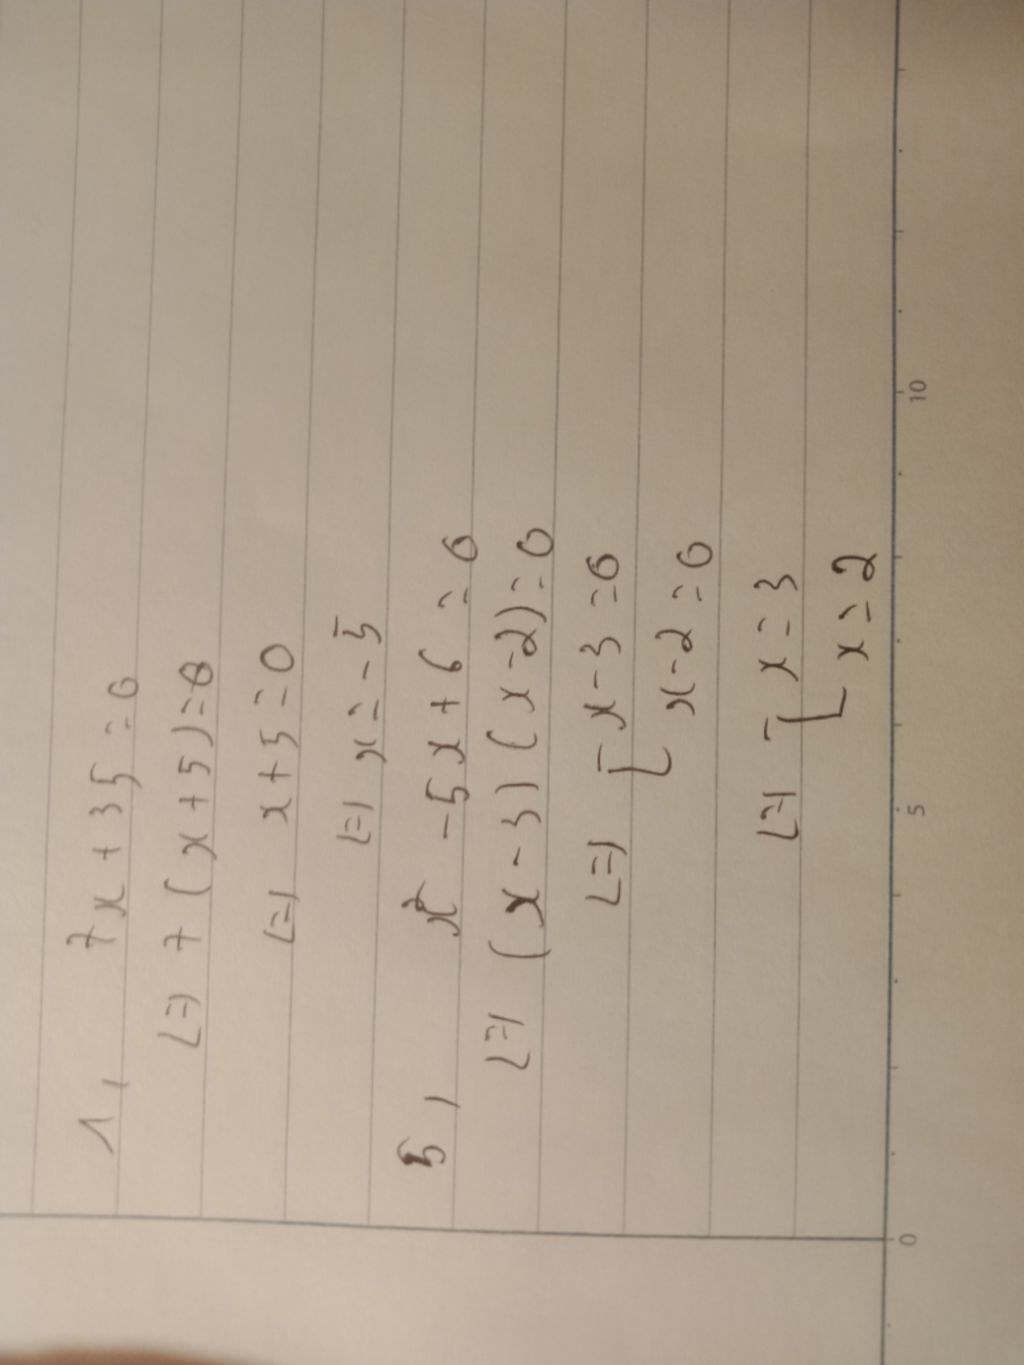 1, 7x + 35 = 0
<=> 7 (x + 5) = 0
<=> x + 5 = 0
<=> x = -5
5, x² - 5x + 6 = 0
<=> (x - 3) (x - 2) = 0
<=> [ x - 3 = 0
x - 2 = 0
<=> [ x = 3
x = 2
0 5 10